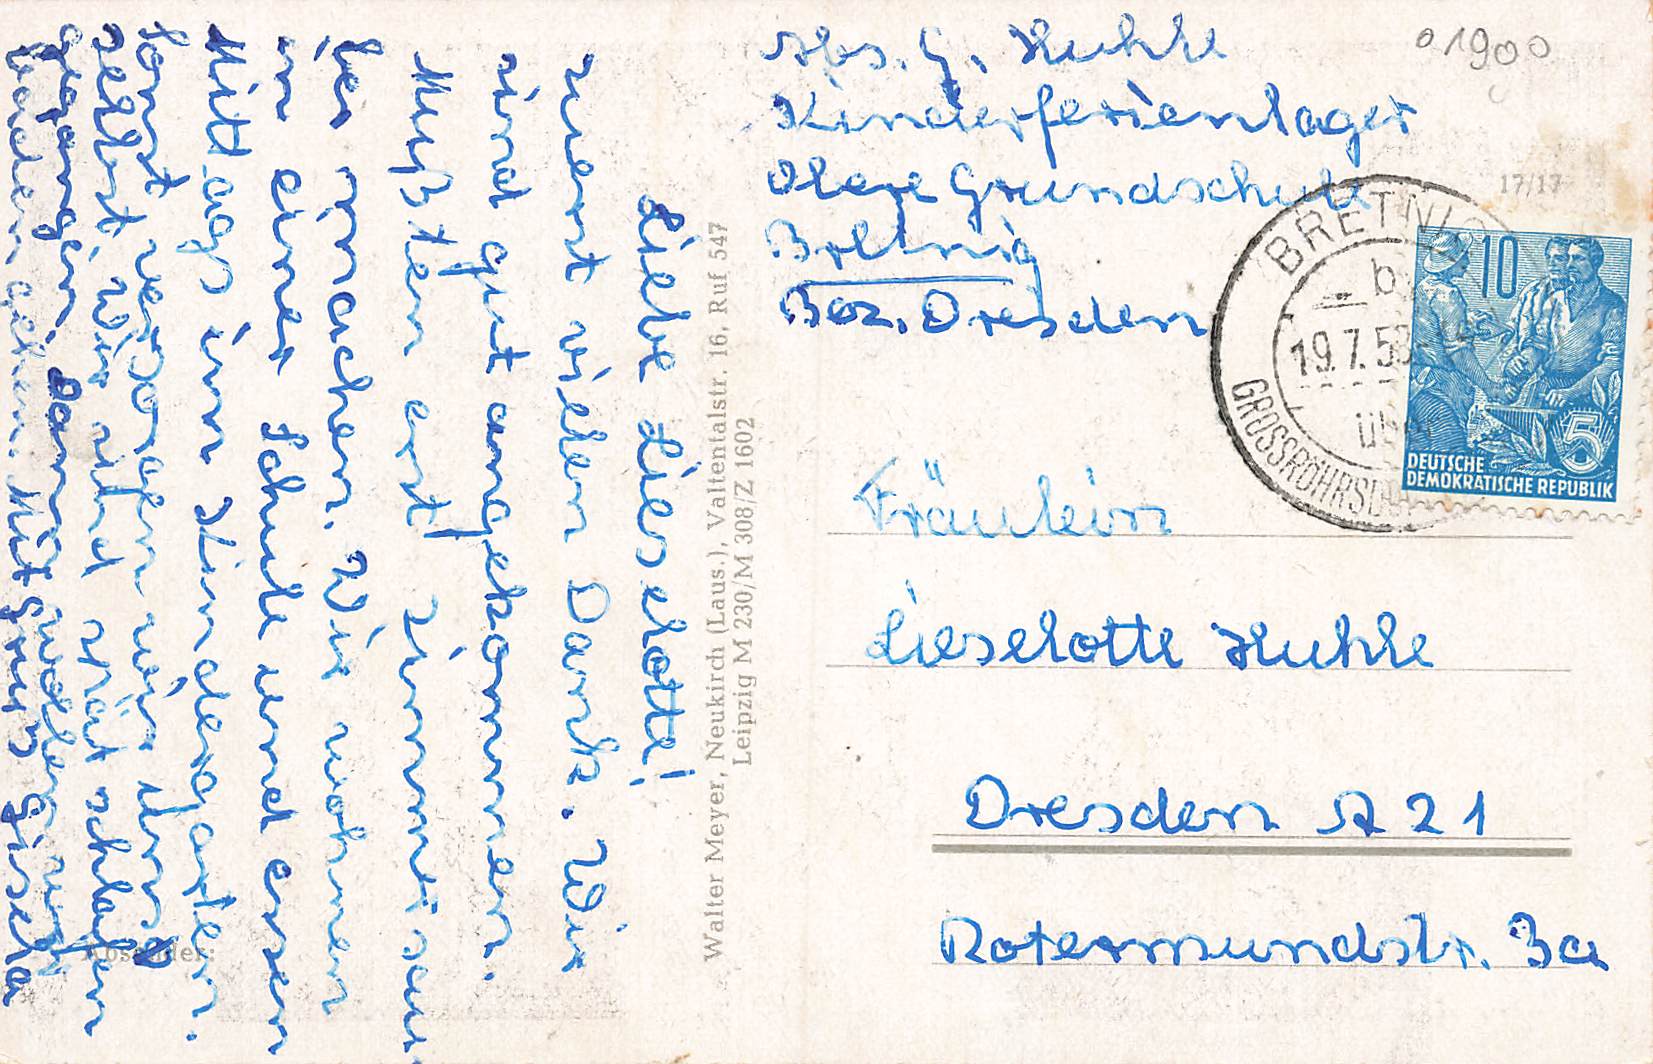 Liebe Lieselotte!
zuerst vielen Dank. Wir
sind gut angekommen.
Mußten erst Zimmer sau-
ber machen. Wir wohnen
in einer Schule und essen
Mittags im Kindergarten.
Sonst versorgen wir uns
selbst. Wir sind spät schlafen
gegangen. Dann wollen wir
baden gehen. Mit Gruß Gisela
Absender:
Walter Meyer, Neukirch (Laus.), Valtentalstr. 16, Ruf 547
Leipzig M 230/M 308/Z 1602
Abs. G. Huhle
Kinderferienlager
Obere Grundschule
Bretnig
Bez. Dresden
01900
17/17
BRETNIG
19.7.58
GROSSRÖHRSD
10
5
DEUTSCHE
DEMOKRATISCHE REPUBLIK
Fräulein
Lieselotte Huhle
Dresden A 21
Rotermundstr. 3a